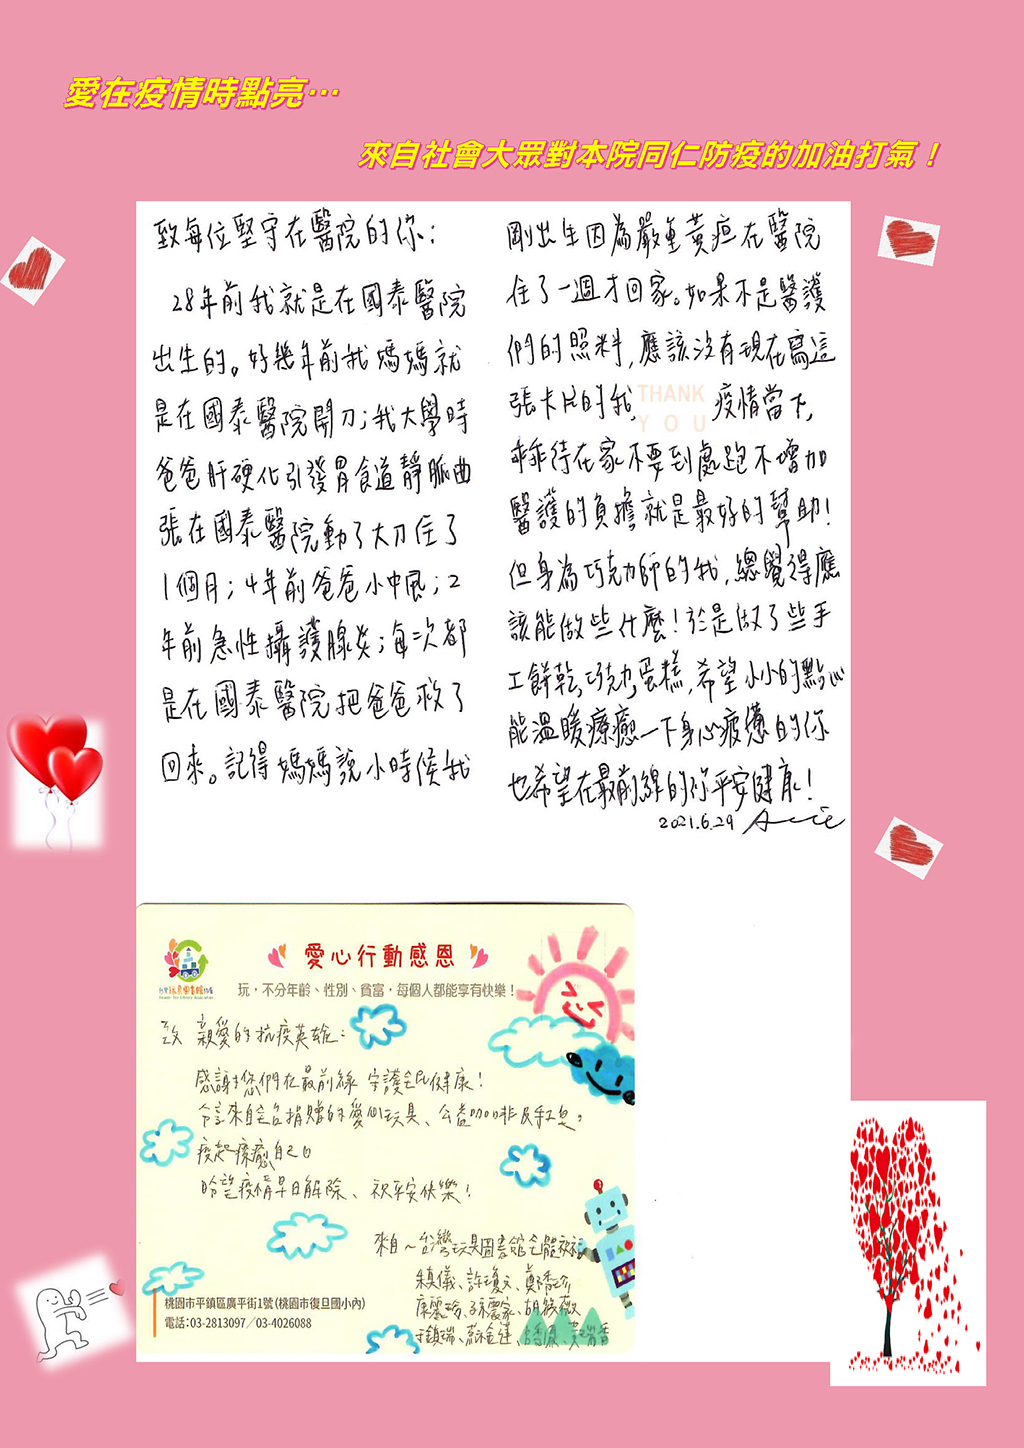 愛在疫情時點亮…
來自社會大眾對本院同仁防疫的加油打氣！
致每位堅守在醫院的你：
28年前我就是在國泰醫院
出生的。好幾年前我媽媽就
是在國泰醫院開刀；我大學時
爸爸肝硬化引發胃食道靜脈曲
張在國泰醫院動了大刀住了
1個月；4年前爸爸小中風；2
年前急性攝護腺炎；每次都
是在國泰醫院把爸爸救了
回來。記得媽媽說小時候我
剛出生因為嚴重黃疸在醫院
住了一週才回家。如果不是醫護
們的照料,應該沒有現在寫這
張卡片的我 疫情當下,
THANK
YOU
乖乖待在家不要到處跑不增加
醫護的負擔就是最好的幫助！
但身為巧克力師的我,總覺得應
該能做些什麼！於是做了些手
工餅乾,巧克力,蛋糕,希望小小的點心
能溫暖療癒一下身心疲憊的你
也希望在最前線的你平安健康！
2021.6.29 Acie
愛心行動感恩
玩，不分年齡、性別、貧富，每個人都能享有快樂！
致 親愛的抗疫英雄：
感謝您們在最前線 守護全民健康！
來自全台捐贈的愛心玩具、公益咖啡及手工皂，
疫起療癒自己
盼望疫情早日解除、祝平安快樂！
來自~台灣玩具圖書館全體祝福
桃園市平鎮區廣平街1號(桃園市復旦國小內)
電話：03-2813097／03-4026088